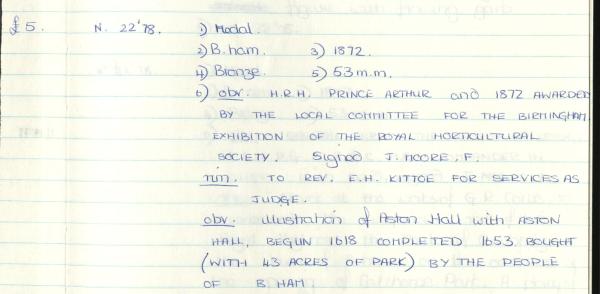 £5. N. 22'78. 1) Medal
2) B.ham. 3) 1872.
4) Bronze. 5) 53 m.m.
6) obv. H.R.H. PRINCE ARTHUR and 1872 AWARDED
BY THE LOCAL COMMITTEE FOR THE BIRMINGHAM
EXHIBITION OF THE ROYAL HORTICULTURAL
SOCIETY. Signed J. MOORE. F.
rim. TO REV. E.H. KITTOE FOR SERVICES AS
JUDGE.
obv. illustration of Aston Hall with ASTON
HALL, BEGUN 1618 COMPLETED 1653. BOUGHT
(WITH 43 ACRES OF PARK) BY THE PEOPLE
OF B.HAM